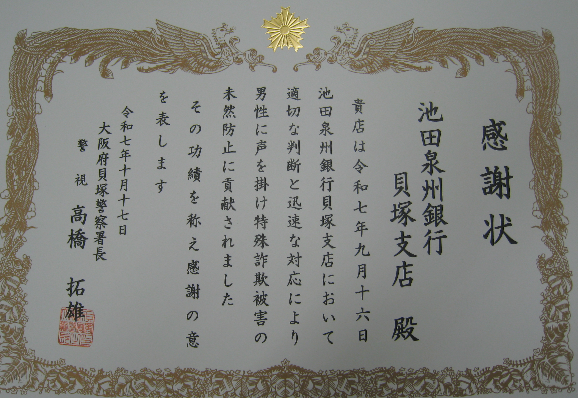 感謝状
池田泉州銀行
貝塚支店 殿
貴店は令和七年九月十六日
池田泉州銀行貝塚支店において
適切な判断と迅速な対応により
男性に声を掛け特殊詐欺被害の
未然防止に貢献されました
その功績を称え感謝の意
を表します
令和七年十月十七日
大阪府貝塚警察署長
警視 高橋 拓雄